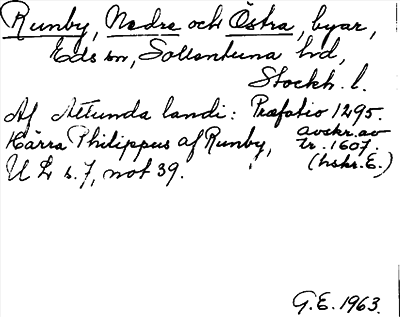 Runby, Nedre och Östra, byar,
Eds sn, Sollentuna hd,
Stockh. l.
Af Attunda landi: Præfatio 1295.
Härra Philippus af Runby, avskr. av
tr. 1607.
U L s. 7, not 39. (hskr. E.)
G.E. 1963.